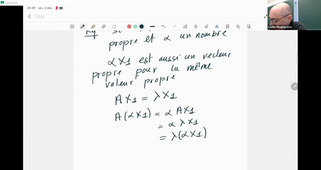 propre et α un nombre
αX1 est aussi un vecteur
propre pour la même
valeur propre
A X1 = λX1
A(αX1) = α AX1
= α λ X1
= λ(αX1)